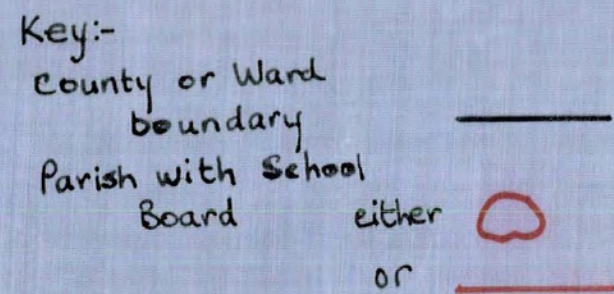 Key:-
County or Ward
boundary
Parish with School
Board either
or